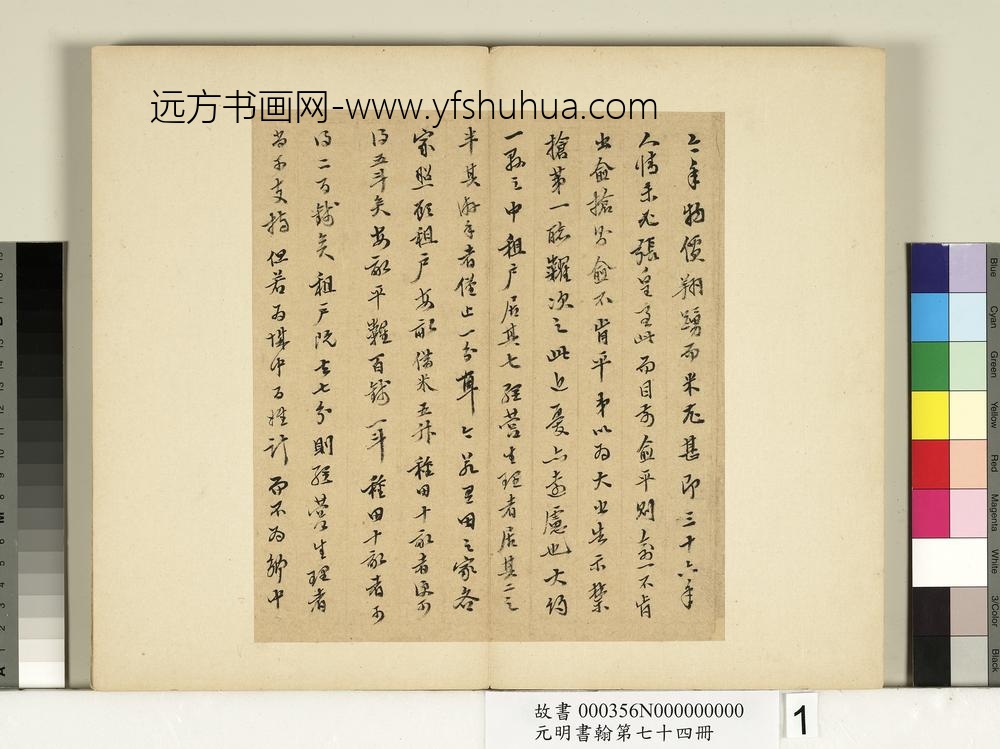 远方书画网-www.yfshuhua.com
今年物價翔踴而米尤甚即三十六年
人情未必張皇至此而目前愈平則愈不肯
出愈搶則愈不肯平弟以為大出告示禁
搶第一硋糶次之此近憂亦遠慮也大約
一縣之中租戶居其七經營生理者居其二之
半其游手者僅止一分耳今若里田之家各
家照顧租戶每畝借米五升種田十畝者便可
得五斗矣每畝平糶百錢一斗種田十畝者可
得二百錢矣租戶既去七分則經營生理者
當不支持但若為城中百姓計而不為鄉中
故書 000356N000000000
元明書翰第七十四冊
1
Blue
Cyan
Green
Yellow
Red
Magenta
White
3/Color
Black